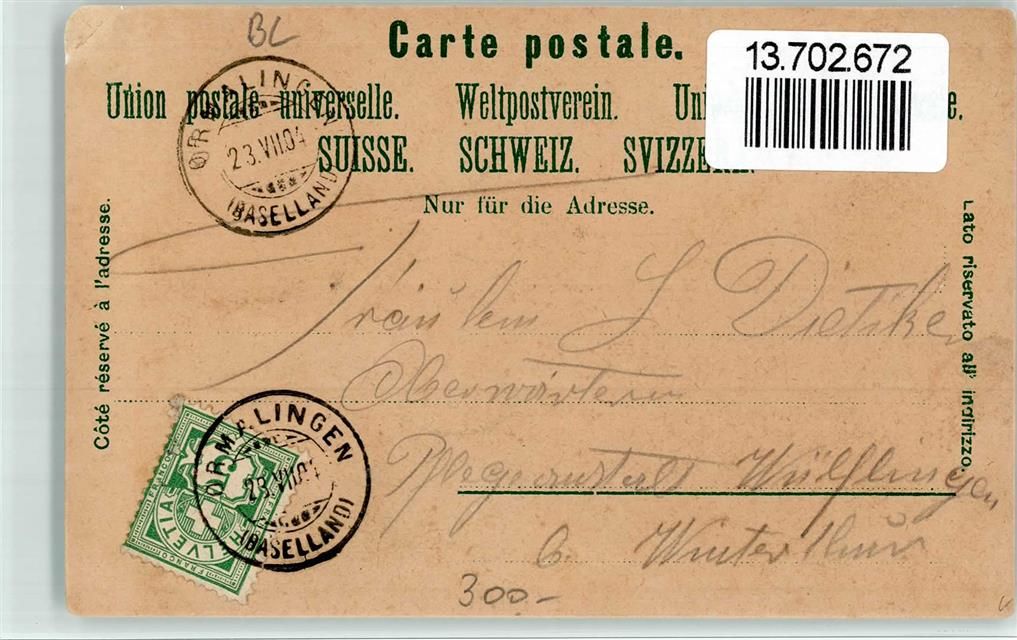 BL
Carte postale.
13.702.672
Union postale universelle. Weltpostverein. Uni e.
SUISSE. SCHWEIZ. SVIZZE
ORMALINGEN
23.VII.04
(BASELLAND)
Nur für die Adresse.
Côté réservé à l'adresse.
Lato riservato all' indirizzo.
Fräulein S Dietiker
Oberwärterin
Pflegeanstalt Wülflingen
b. Winterthur
ORMALINGEN
23.VII.04
(BASELLAND)
FRANCO
HELVETIA
FRANCO
300.-